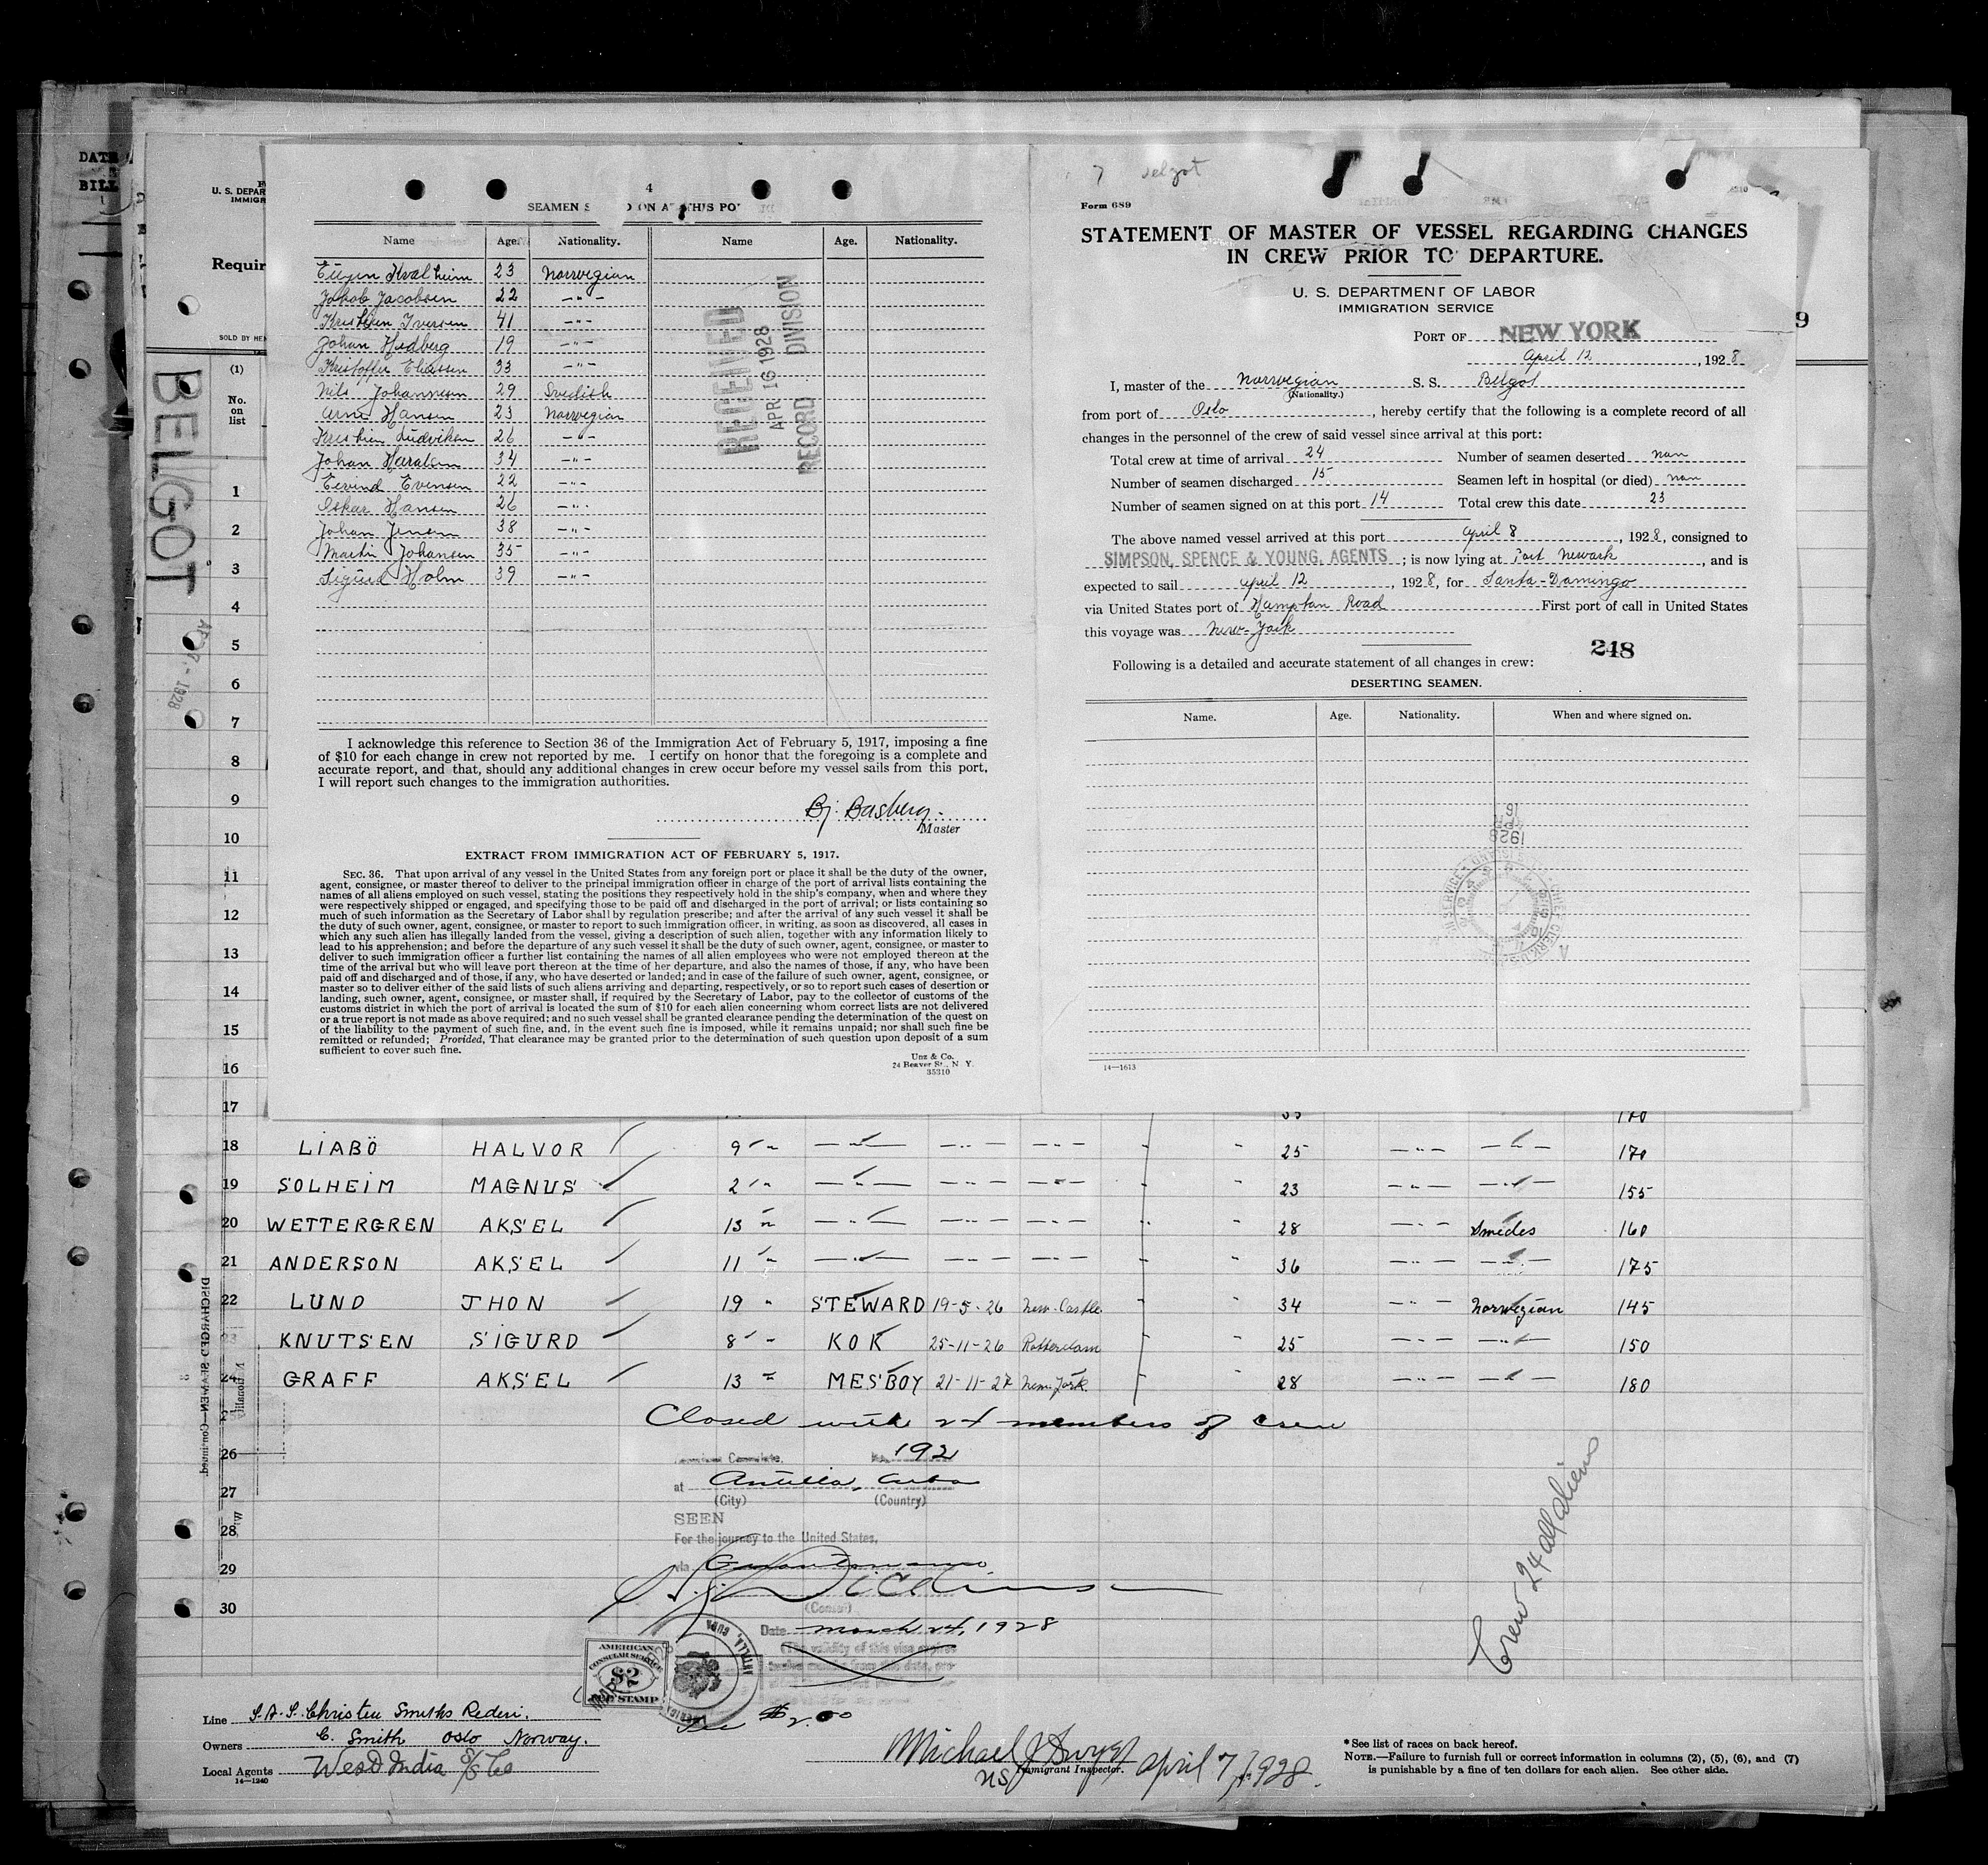 DATE
BILL
U. S. DEPAR
IMMIGR
Requir
SOLD BY HEN
BELGOT
4
SEAMEN S D ON A THIS PO
Name Age. Nationality. Name Age. Nationality.
23 Norwegian
Jakob Jacobsen 22 -"-
Kristian Iversen 41 -"-
Johan Hedberg 19 -"-
Kristoffer Eliassen 33 -"-
Nils Johannesen 29 Swedish
Arne Hansen 23 Norwegian
Kristian Ludviksen 26 -"-
Johan 34 -"-
Eivind Evensen 22 -"-
Oskar Hansen 26 -"-
Johan Jensen 38 -"-
Martin Johansen 35 -"-
Sigurd Holm 39 -"-
RECEIVED
APR 16 1928
RECORD DIVISION
I acknowledge this reference to Section 36 of the Immigration Act of February 5, 1917, imposing a fine
of $10 for each change in crew not reported by me. I certify on honor that the foregoing is a complete and
accurate report, and that, should any additional changes in crew occur before my vessel sails from this port,
I will report such changes to the immigration authorities.
Bj. Basberg.
Master
EXTRACT FROM IMMIGRATION ACT OF FEBRUARY 5, 1917.
SEC. 36. That upon arrival of any vessel in the United States from any foreign port or place it shall be the duty of the owner,
agent, consignee, or master thereof to deliver to the principal immigration officer in charge of the port of arrival lists containing the
names of all aliens employed on such vessel, stating the positions they respectively hold in the ship's company, when and where they
were respectively shipped or engaged, and specifying those to be paid off and discharged in the port of arrival; or lists containing so
much of such information as the Secretary of Labor shall by regulation prescribe; and after the arrival of any such vessel it shall be
the duty of such owner, agent, consignee, or master to report to such immigration officer, in writing, as soon as discovered, all cases in
which any such alien has illegally landed from the vessel, giving a description of such alien, together with any information likely to
lead to his apprehension; and before the departure of any such vessel it shall be the duty of such owner, agent, consignee, or master to
deliver to such immigration officer a further list containing the names of all alien employees who were not employed thereon at the
time of the arrival but who will leave port thereon at the time of her departure, and also the names of those, if any, who have been
paid off and discharged and of those, if any, who have deserted or landed; and in case of the failure of such owner, agent, consignee, or
master so to deliver either of the said lists of such aliens arriving and departing, respectively, or so to report such cases of desertion or
landing, such owner, agent, consignee, or master shall, if required by the Secretary of Labor, pay to the collector of customs of the
customs district in which the port of arrival is located the sum of $10 for each alien concerning whom correct lists are not delivered
or a true report is not made as above required; and no such vessel shall be granted clearance pending the determination of the quest on
of the liability to the payment of such fine, and, in the event such fine is imposed, while it remains unpaid; nor shall such fine be
remitted or refunded; Provided, That clearance may be granted prior to the determination of such question upon deposit of a sum
sufficient to cover such fine.
Unz & Co.
24 Beaver St., N. Y.
35310
Form 689
STATEMENT OF MASTER OF VESSEL REGARDING CHANGES
IN CREW PRIOR TO DEPARTURE.
U. S. DEPARTMENT OF LABOR
IMMIGRATION SERVICE
PORT OF NEW YORK
April 12, 1928
I, master of the Norwegian S. S. Belgot
(Nationality.)
from port of Oslo, hereby certify that the following is a complete record of all
changes in the personnel of the crew of said vessel since arrival at this port:
Total crew at time of arrival 24 Number of seamen deserted non
Number of seamen discharged 15 Seamen left in hospital (or died) non
Number of seamen signed on at this port 14 Total crew this date 23
The above named vessel arrived at this port April 8, 1928, consigned to
SIMPSON, SPENCE & YOUNG, AGENTS; is now lying at Port Newark, and is
expected to sail April 12, 1928, for Santa-Domingo
via United States port of Hampton Road First port of call in United States
this voyage was New-York
248
Following is a detailed and accurate statement of all changes in crew:
DESERTING SEAMEN.
Name. Age. Nationality. When and where signed on.
14-1613
(1)
No.
on
list
1
2
3
4
5
6
7
8
9
10
11
12
13
14
15
16
17 35 170
18 LIABÖ HALVOR 9 " 25 170
19 SOLHEIM MAGNUS 2 " 23 155
20 WETTERGREN AKSEL 13 " 28 Swedes 160
21 ANDERSON AKSEL 11 " 36 175
22 LUND JHON 19 " STEWARD 19-5-26 New-Castle 34 Norwegian 145
23 KNUTSEN SIGURD 8 " KOK 25-11-26 Rotterdam 25 150
24 GRAFF AKSEL 13 " MESBOY 21-11-27 New York 28 180
25 Closed with 24 members of crew
26 No. 192
27 at Antilla, Cuba
(City) (Country)
28 SEEN
For the journey to the United States,
29 via Guantanamo
30 (Consul)
Date March 24, 1928
AMERICAN
CONSULAR SERVICE
$2
FEE STAMP
ANTILLA, CUBA
Fee $2.00
Crew 24 all aliens
DISCHARGED SEAMEN—Continued.
Line S.A.S. Christen Smiths Rederi.
Owners C. Smith Oslo Norway.
Local Agents West India S/S Co
14-1240
Michael J Dwyer April 7, 1928.
Immigrant Inspector.
* See list of races on back hereof.
NOTE.—Failure to furnish full or correct information in columns (2), (5), (6), and (7)
is punishable by a fine of ten dollars for each alien. See other side.